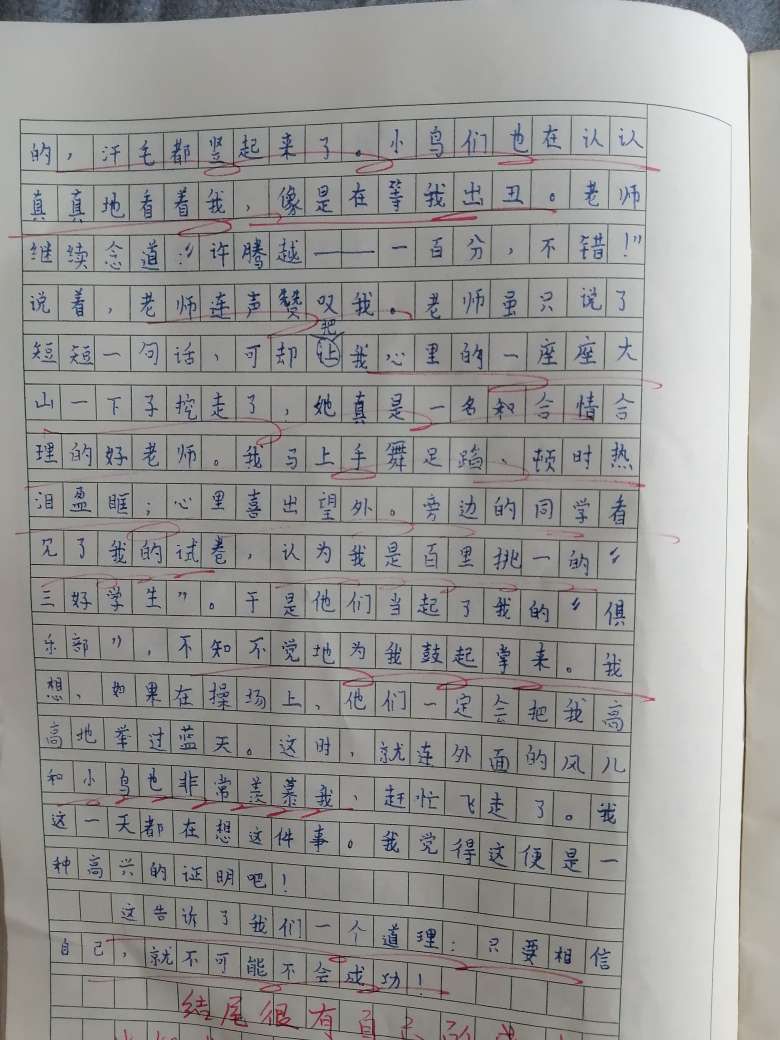 的，汗毛都竖起来了。小鸟们也在认认
真真地看着我，像是在等我出丑。老师
继续念道：“许腾越——一百分，不错！”
说着，老师连声赞叹我。老师虽只说了
把
短短一句话，可却让我心里的一座座大
山一下子挖走了，她真是一名和合情合
理的好老师。我马上手舞足蹈、顿时热
泪盈眶；心里喜出望外。旁边的同学看
见了我的试卷，认为我是百里挑一的“
三好学生”。于是他们当起了我的“俱
乐部”，不知不觉地为我鼓起掌来。我
想，如果在操场上，他们一定会把我高
高地举过蓝天。这时，就连外面的风儿
和小鸟也非常羡慕我，赶忙飞走了。我
这一天都在想这件事。我觉得这便是一
种高兴的证明吧！
这告诉了我们一个道理：只要相信
自己，就不可能不会成功！
结尾很有自己